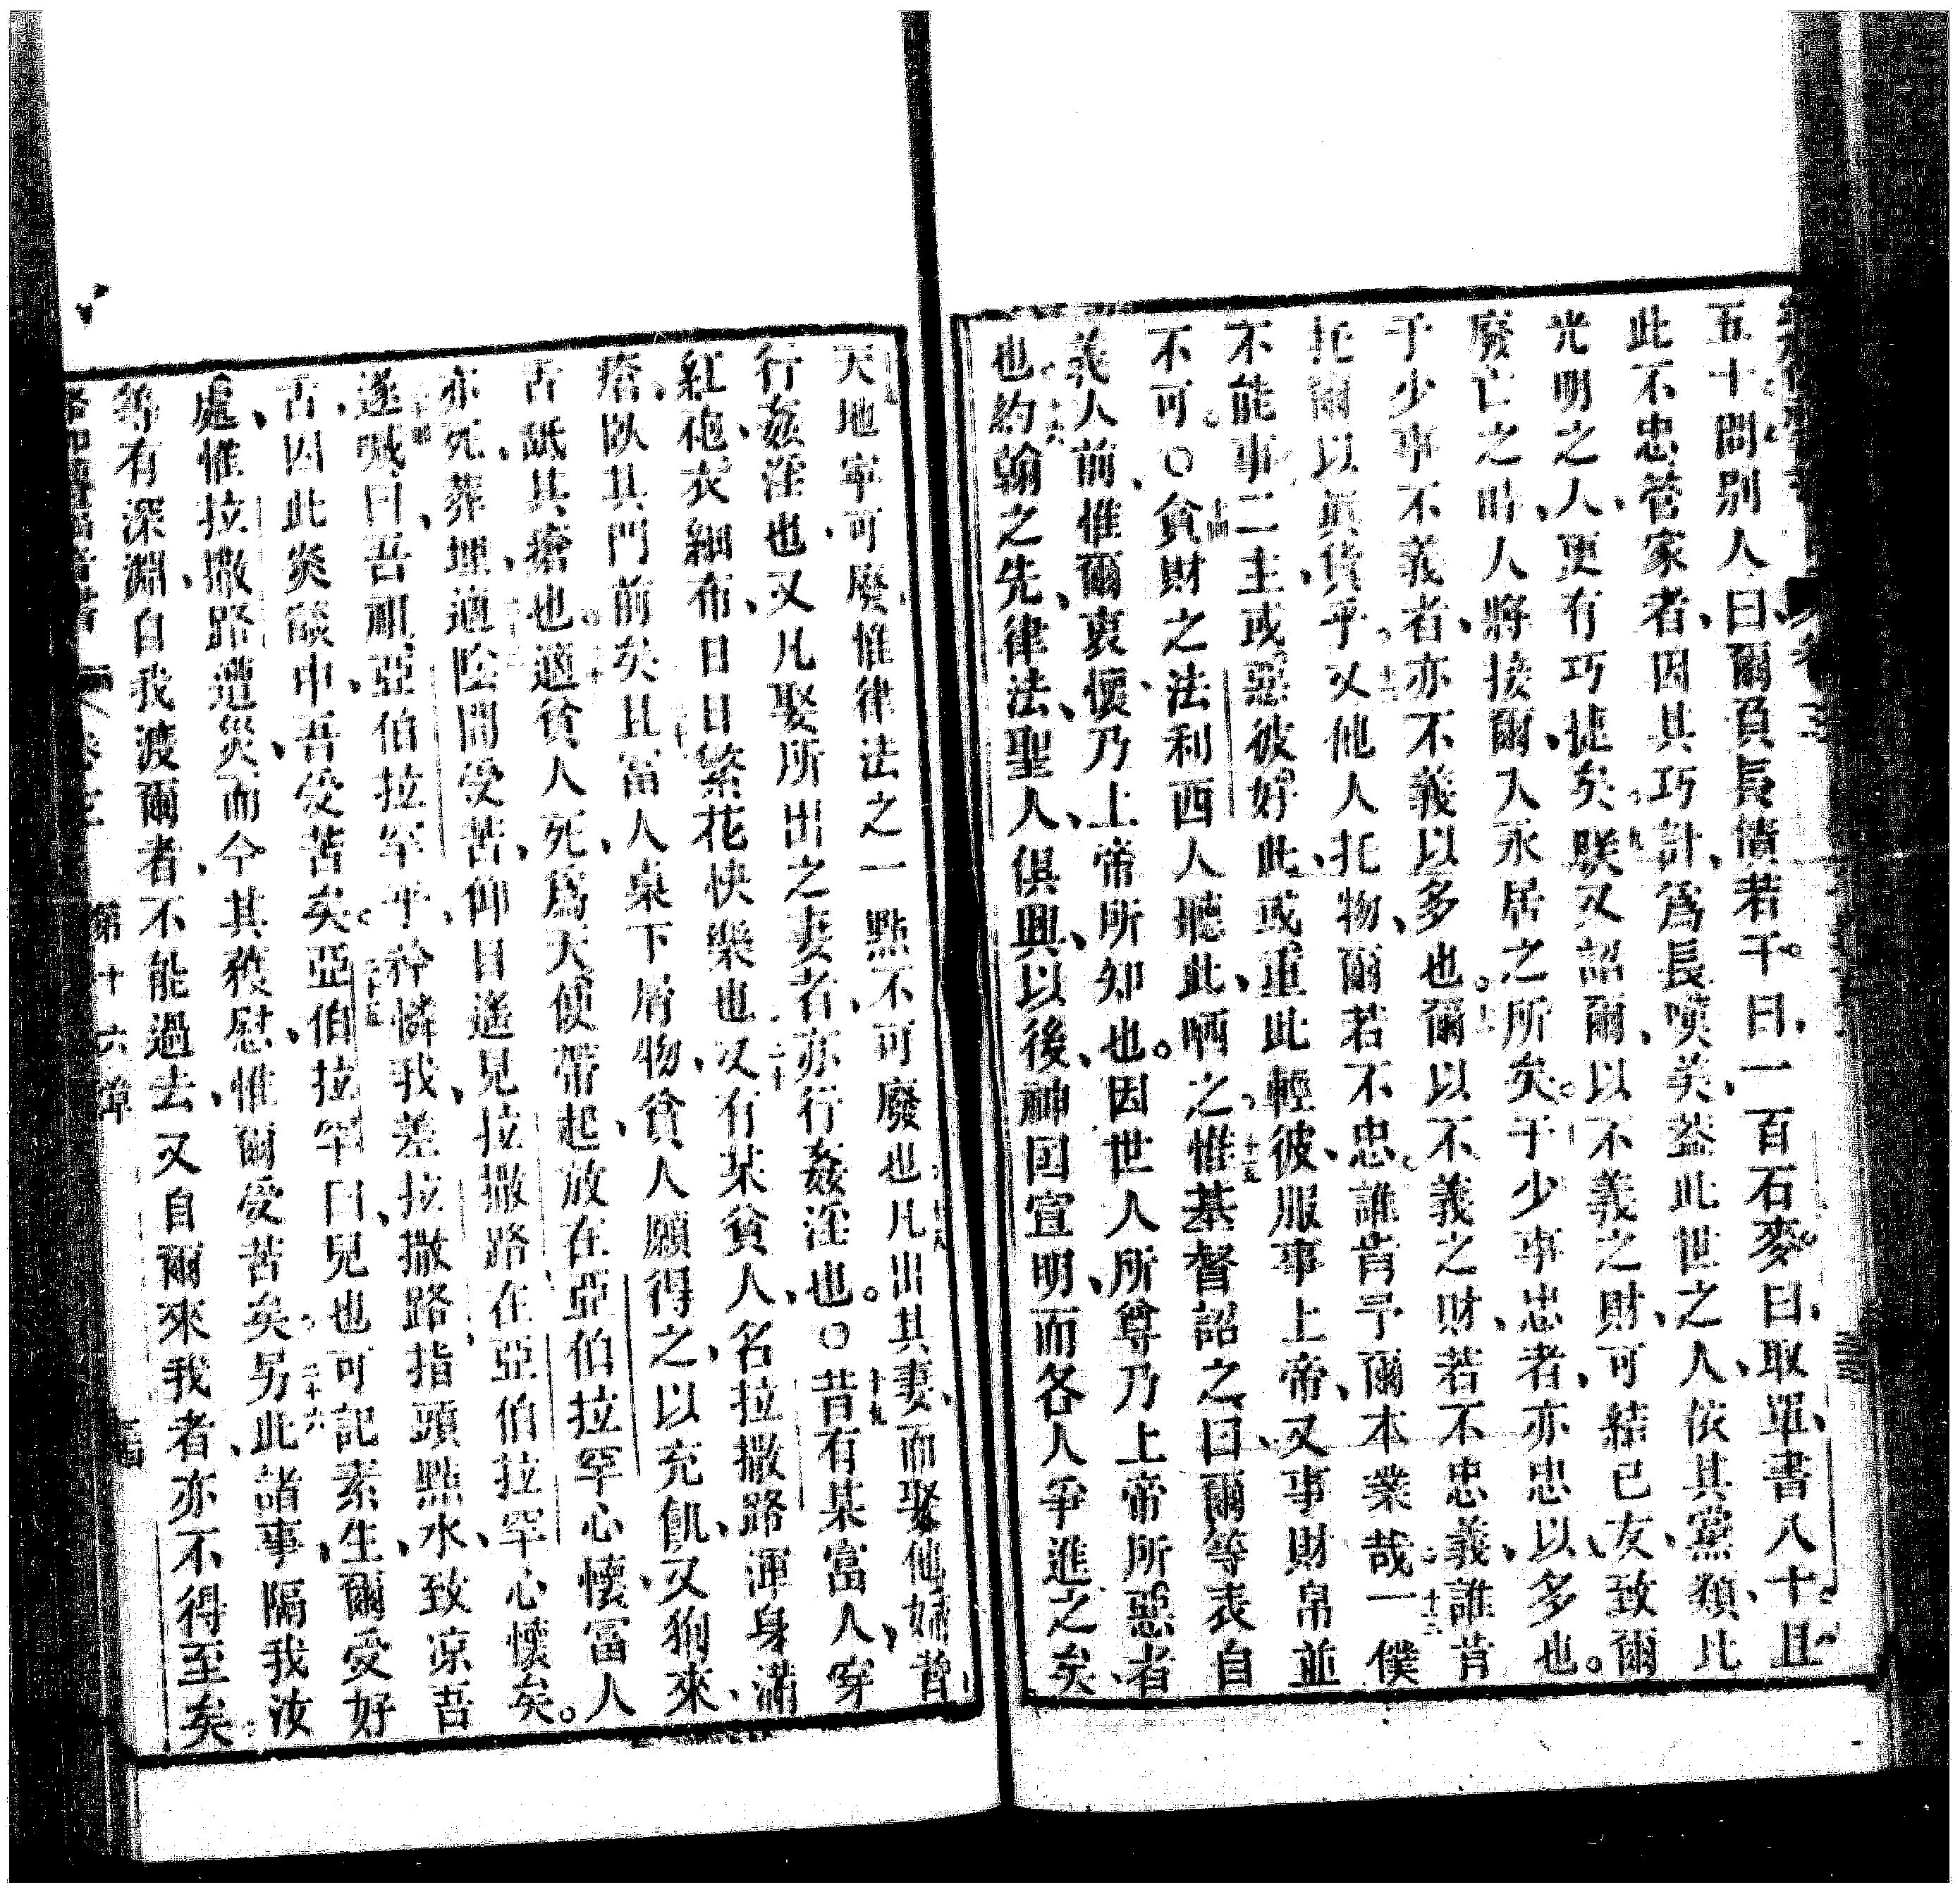 五十問別人曰爾負長債若干曰一百石麥曰取單書八十且
此不忠管家者因其巧計爲長嘆美葢此世之人依其黨類比
光明之人更有巧㨗矣朕又詔爾以不義之財可結己友致爾
廢亡之時人將接爾入永居之所矣于少事忠者亦忠以多也
于少事不義者亦不義以多也爾以不義之財若不忠義誰肯
托爾以眞貨乎又他人托物爾若不忠誰肯予爾本業哉一僕
不能事二主或惡彼好此或重此輕彼服事上帝又事財帛並
不可○貪財之法利西人聽此哂之惟基督詔之曰爾等表自
義人前惟爾衷懷乃上帝所知也因世人所尊乃上帝所惡者
也約翰之先律法聖人俱興以後神囯宣明而各人爭進之矣
天地寧可廢惟律法之一點不可廢也凡出其妻而娶他婦皆
行姦淫也又凡娶所出之妻者亦行姦淫也○昔有某富人穿
紅袍衣細布日日繁花快樂也又有某貧人名拉撒路渾身滿
瘡臥其門前矣且富人桌下屑物貧人願得之以充飢又狗來
舌舐其瘡也適貧人死爲天使帶起放在亞伯拉罕心懷富人
亦死葬埋適陰間受苦仰目遙見拉撒路在亞伯拉罕心懷矣
遂喊曰吾祖亞伯拉罕乎矜憐我差拉撒路指頭點水致凉吾
舌因此炎燄中吾受苦矣亞伯拉罕曰兒也可記素生爾受好
處惟拉撒路遭災而今其獲慰惟爾受苦矣另此諸事隔我汝
等有深淵自我渡爾者不能過去又自爾來我者亦不得至矣
第十六章